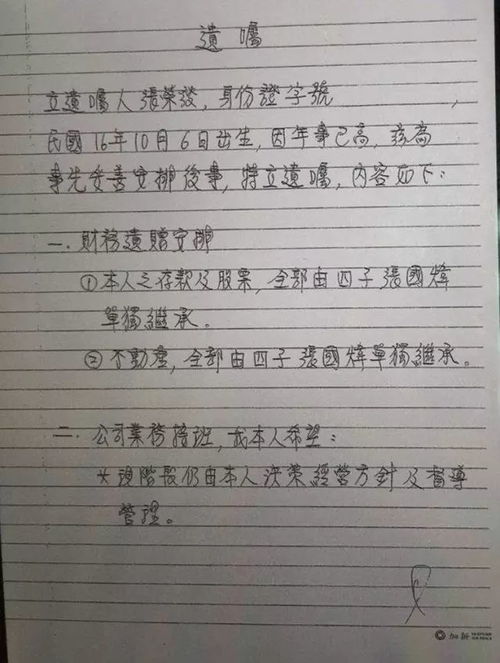 遺囑
立遺囑人張榮發，身份證字號　　　　，
民國16年10月6日出生，因年事已高，茲為
事先妥善安排後事，特立遺囑，內容如下：
一．財務遺贈安排
①本人之存款及股票，全部由四子張國煒
單獨繼承。
②不動產，全部由四子張國煒單獨繼承。
二．公司業務接班，我本人希望：
*現階段仍由本人決策經營方針及督導
管理。
加新